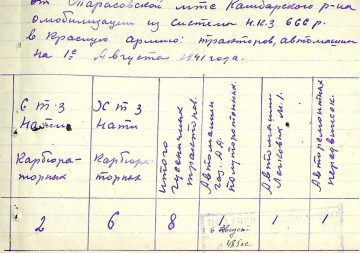 от Тарасовской мтс Кашарского р-на
о мобилизации из системы Н.К.З СССР.
в Красную армию: тракторов, автомашин
на 1е Августа 1941 года.
СТЗ
Нати
Карбюра-
торных
ХТЗ
Нати
Карбюра-
торных
итого
гусеничных
тракторов.
Автомашин
газ А.А.
полуторотонных.
Автомашин
Легковых М.1.
Авторемонтных
передвижек.
2 6 8 1 1 1
6 Август